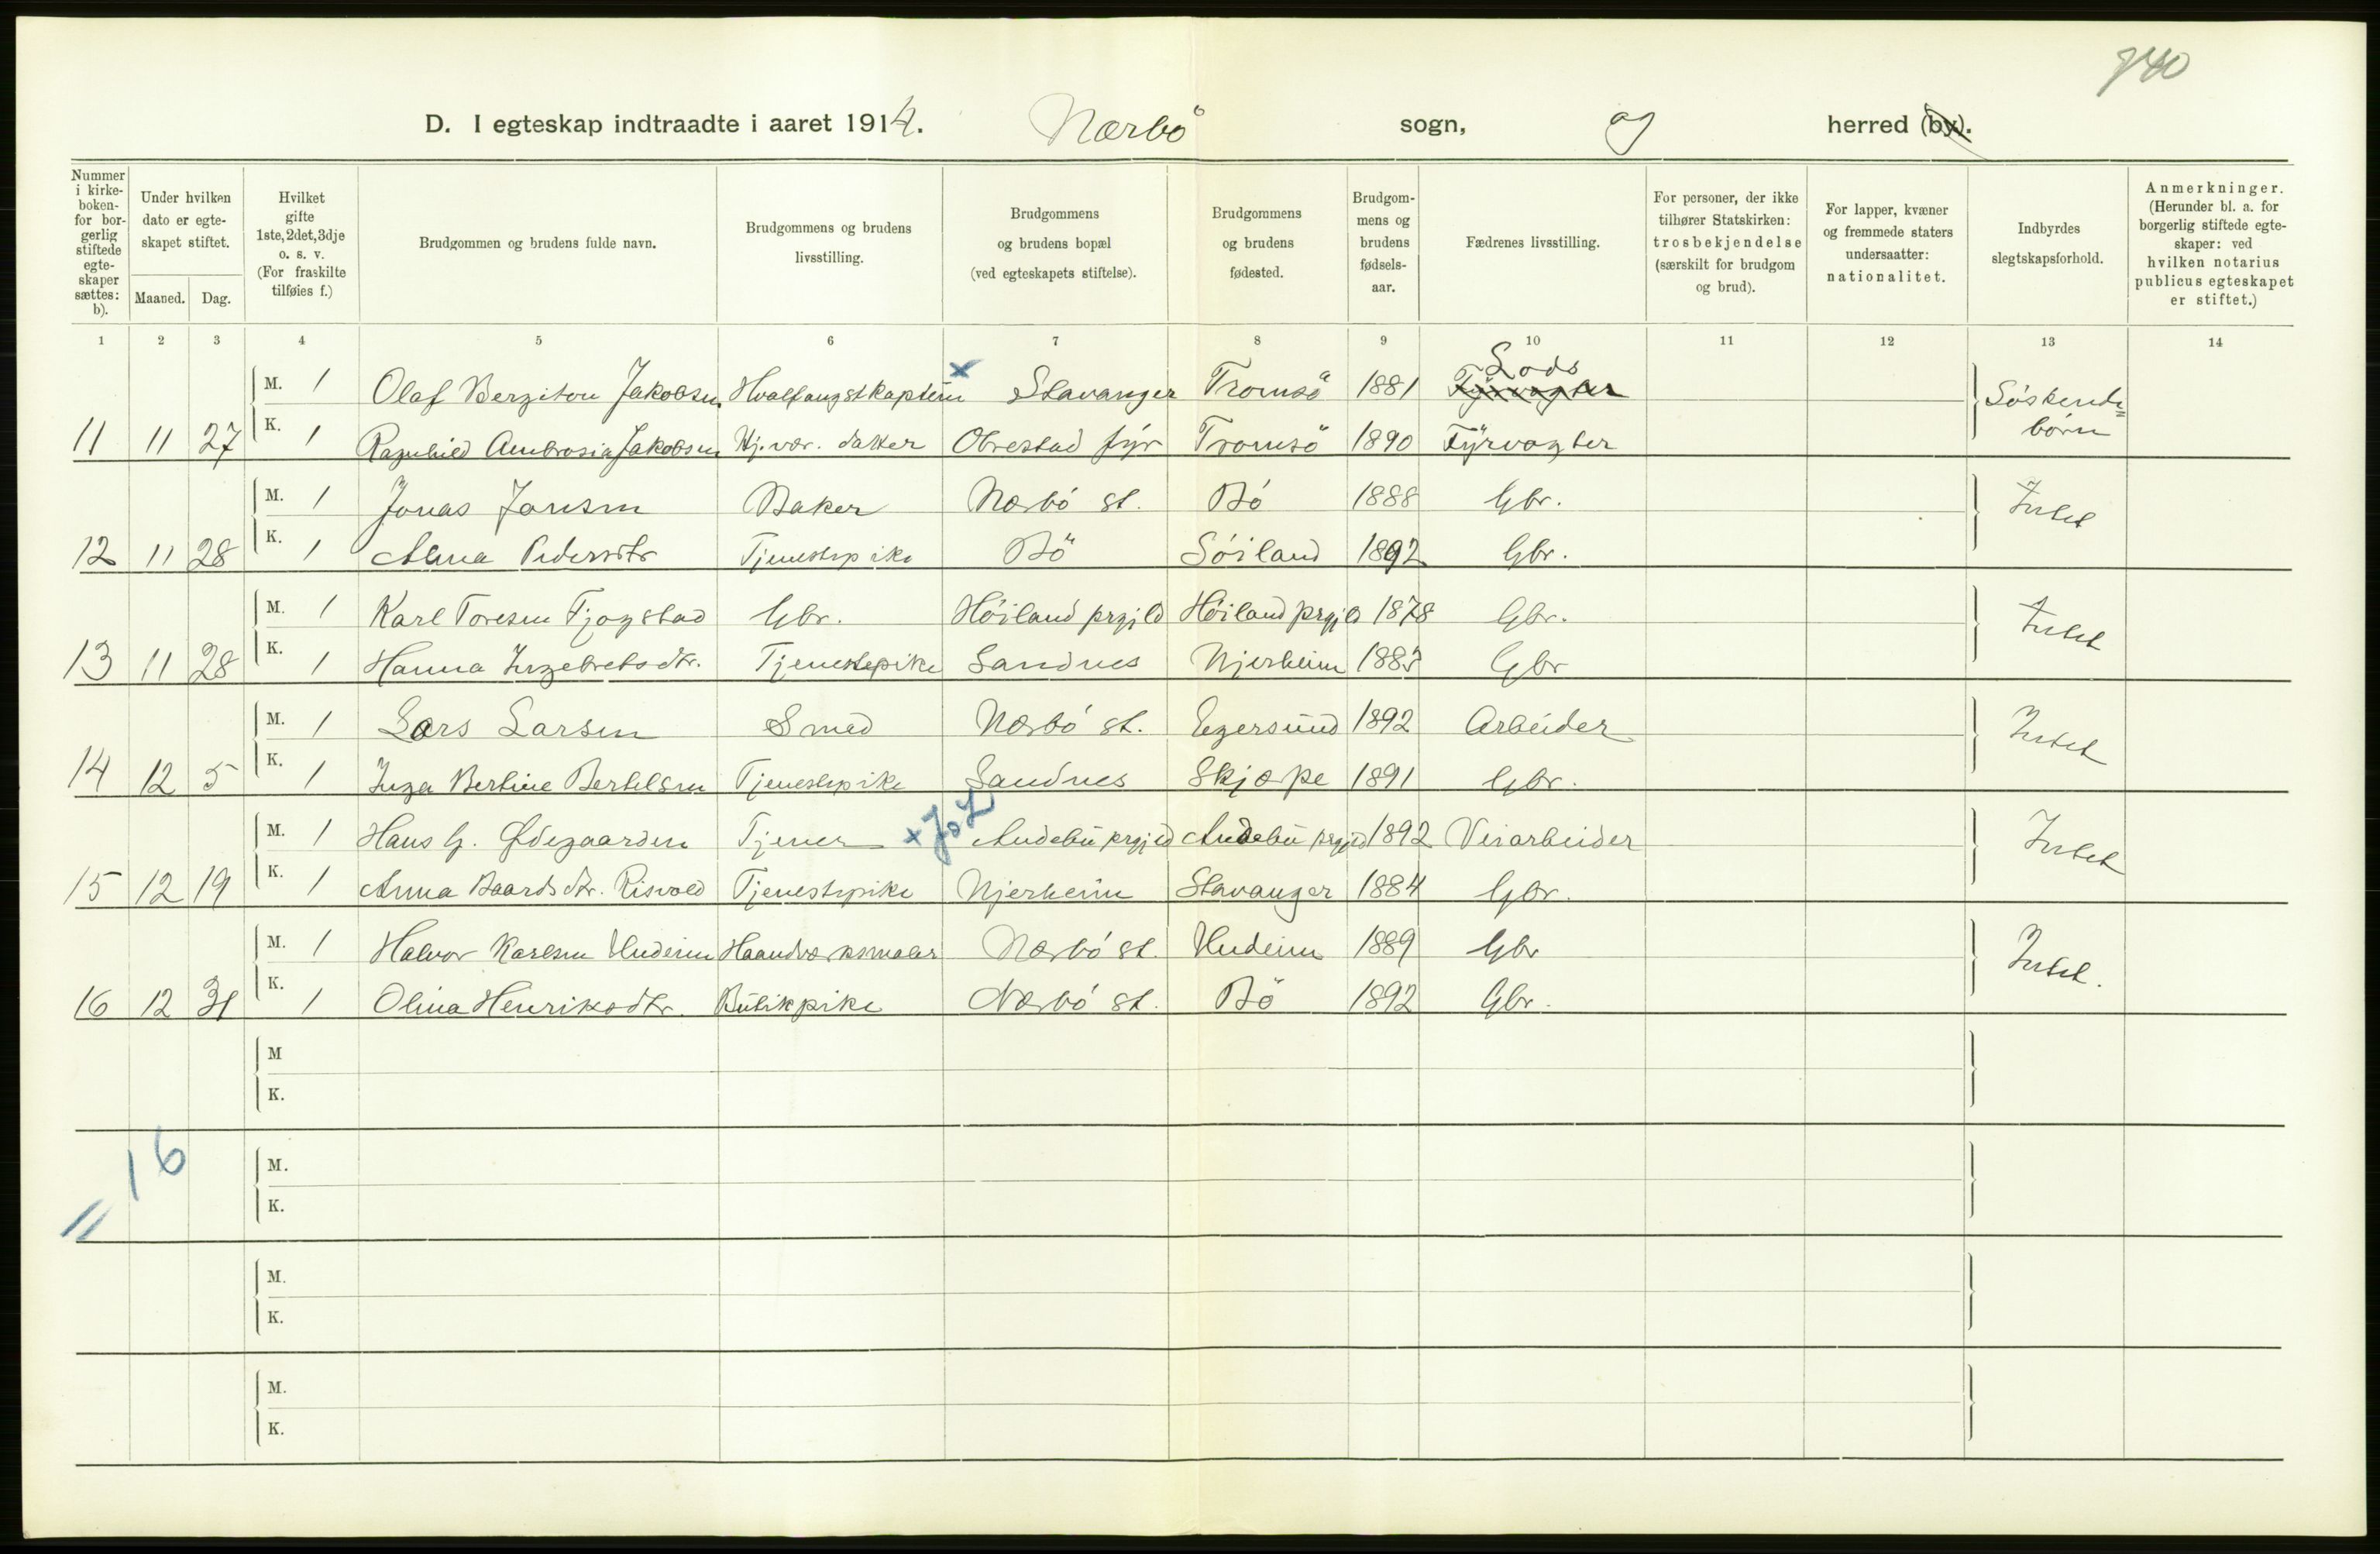 740
D. I egteskap indtraadte i aaret 1914. Nærbö sogn, og herred (by).
Nummer i kirke-boken- for bor-gerlig stiftede egte-skaper sættes: b).
Under hvilken dato er egte-skapet stiftet.
Maaned. Dag.
Hvilket gifte 1ste, 2det, 3dje o. s. v. (For fraskilte tilføies f.)
Brudgommen og brudens fulde navn.
Brudgommens og brudens livsstilling.
Brudgommens og brudens bopæl (ved egteskapets stiftelse).
Brudgommens og brudens fødested.
Brudgom-mens og brudens fødsels-aar.
Fædrenes livsstilling.
For personer, der ikke tilhører Statskirken: trosbekjendelse (særskilt for brudgom og brud).
For lapper, kvæner og fremmede staters undersaatter: nationalitet.
Indbyrdes slegtskapsforhold.
Anmerkninger. (Herunder bl. a. for borgerlig stiftede egte-skaper: ved hvilken notarius publicus egteskapet er stiftet.)
1 2 3 4 5 6 7 8 9 10 11 12 13 14
M. 1 Olaf Bergiton Jakobsen Hvalfangstkaptein x Stavanger Tromsö 1881 Fyrvagter Lods Söskende=
11 11 27 K. 1 Ragnhild Ambrosia Jakobsen Hj.vær. datter Obrestad fyr Tromsö 1890 Fyrvagter börn
M. 1 Jonas Jonsen Baker Nærbö st. Bö 1888 Gbr. Intet
12 11 28 K. 1 Alma Pedersdtr Tjenestepike Bö Söiland 1892 Gbr.
M. 1 Karl Toresen Tjogstad Gbr. Höiland prgjld Höiland prgjld 1878 Gbr. Intet
13 11 28 K. 1 Hanna Ingebretsdtr. Tjenestepike Sandnes Njerheim 1887 Gbr
M. 1 Lars Larsen Smed Nærbö st. Egersund 1892 Arbeider Intet
14 12 5 K. 1 Inga Bertine Bertelsen Tjenestepike Sandnes Skjæpe 1891 Gbr.
M. 1 Hans G. Ødegaarden Tjener x Andebu prgjld Andebu prgjld 1892 Veiarbeider Intet
15 12 19 K. 1 Anna Baardsdtr. Risvold Tjenestepike Njerheim Stavanger 1884 Gbr.
M. 1 Halvor Karlsen Undeim Haandværksmaler Nærbö st. Undeim 1889 Gbr Intet.
16 12 31 K. 1 Olina Henriksdtr. Butikpike Nærbö st. Bö 1892 Gbr.
M
K.
16
M.
K.
M.
K.
M.
K.